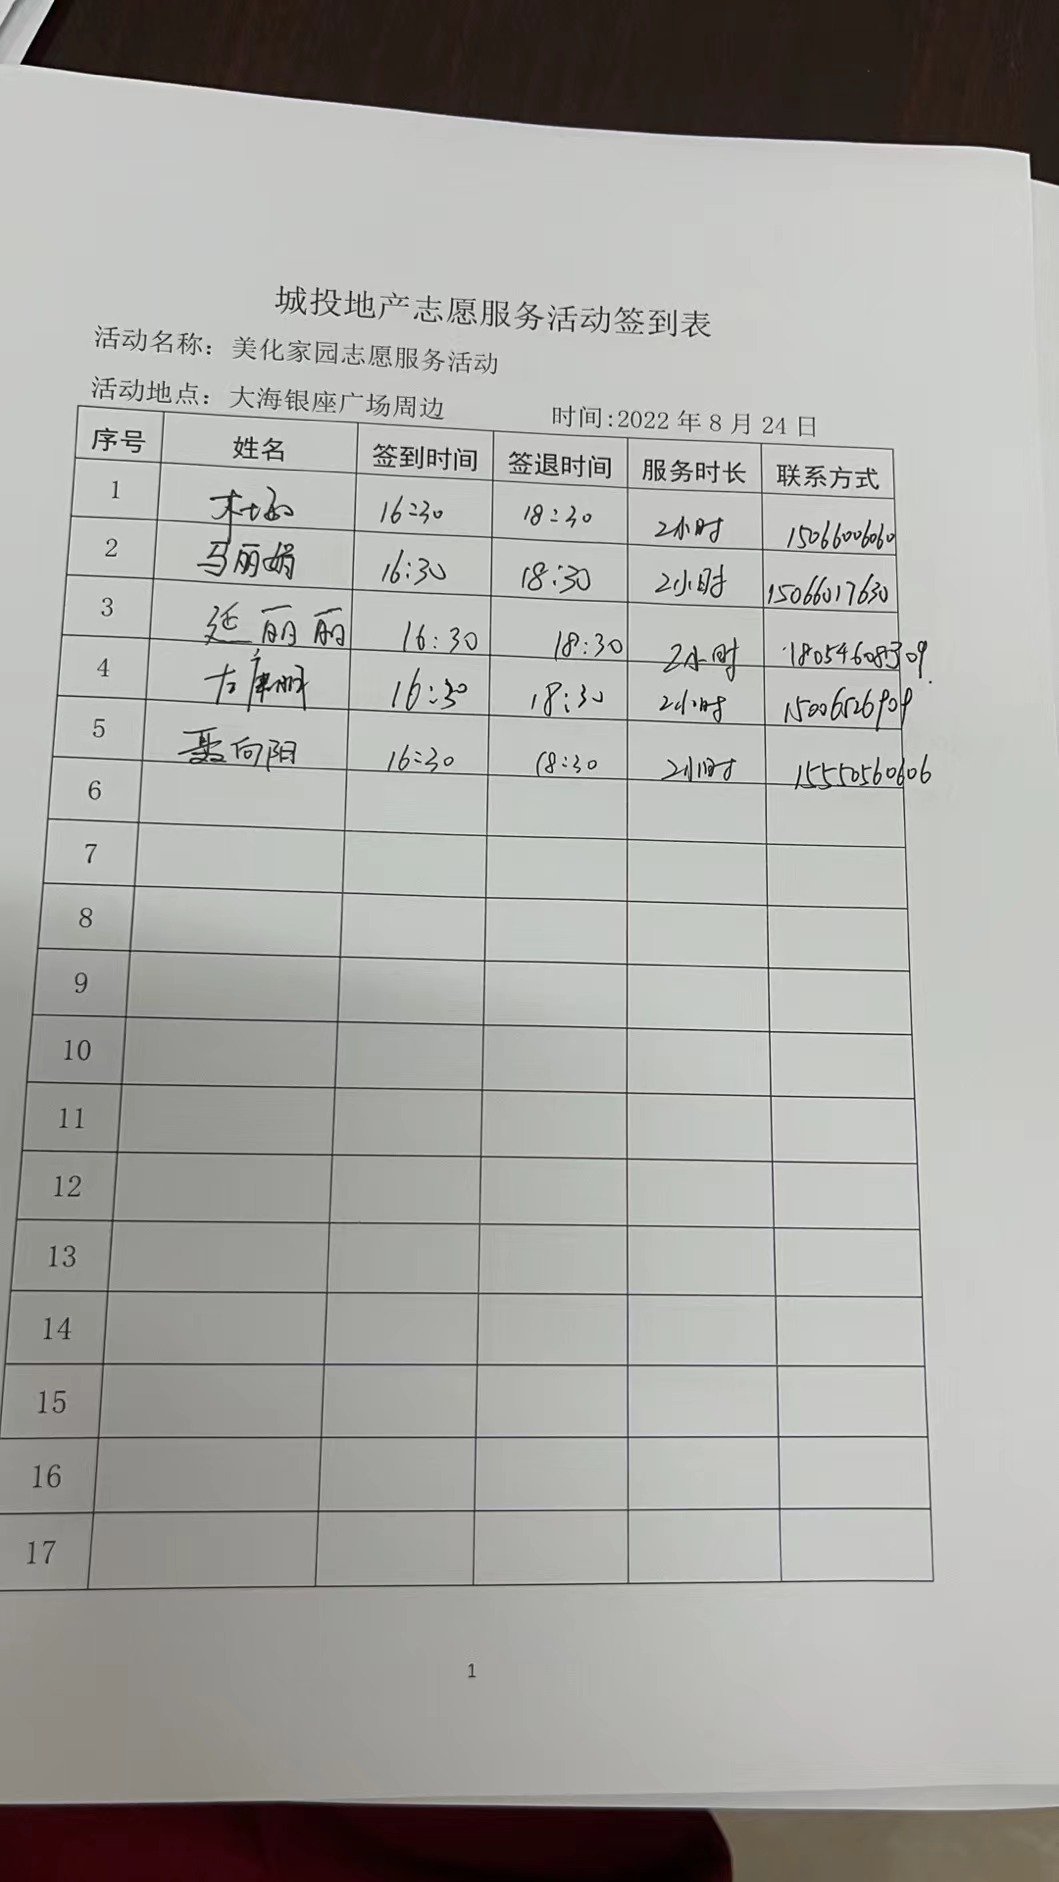 城投地产志愿服务活动签到表
活动名称：美化家园志愿服务活动
活动地点：大海银座广场周边 时间:2022年8月24日
序号 姓名 签到时间 签退时间 服务时长 联系方式
1 杜函 16:30 18:30 2小时 15066006060
2 马丽娟 16:30 18:30 2小时 15066017630
3 延丽丽 16:30 18:30 2小时 18054608309
4 16:30 18:30 2小时 15006526909
5 聂向阳 16:30 18:30 2小时 15550560606
6
7
8
9
10
11
12
13
14
15
16
17
1